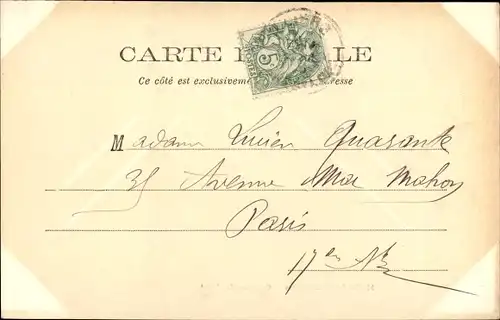 CARTE ALE
Ce côté est exclusiveme resse
5
Madame Lucien Quarante
35 Avenue Mac Mahon
Paris
17e